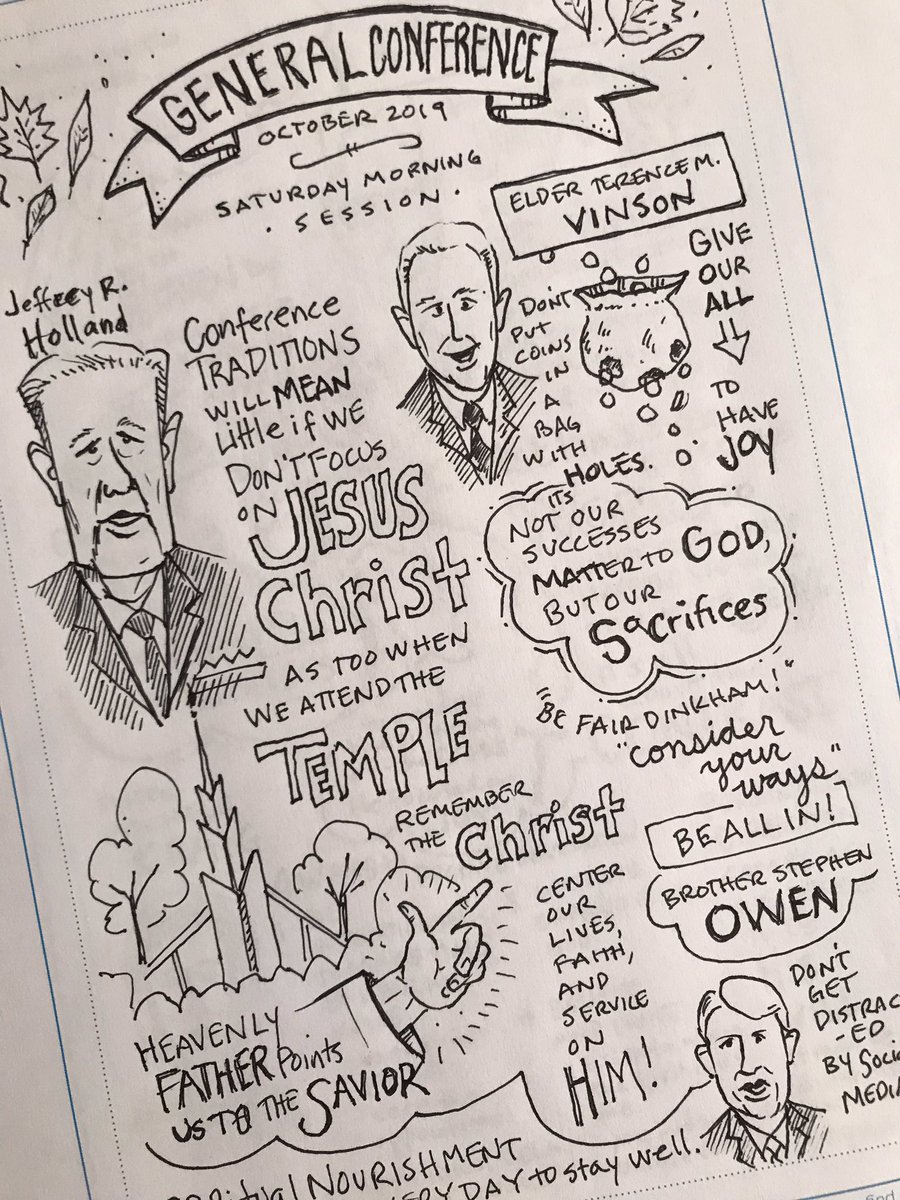 GENERAL CONFERENCE
OCTOBER 2019
SATURDAY MORNING
· SESSION ·
Jeffrey R.
Holland
Conference
TRADITIONS
WILL MEAN
Little if WE
DON'T FOCUS
ON JESUS
Christ
AS TOO WHEN
WE ATTEND THE
TEMPLE
REMEMBER
THE Christ
CENTER
OUR
LIVES,
FAITH,
AND
SERVICE
ON
HIM!
HEAVENLY
FATHER Points
US TO THE SAVIOR
ELDER TERENCE M.
VINSON
DON'T
PUT
COINS
IN
A
BAG
WITH
HOLES.
GIVE
OUR
ALL
TO
HAVE
JOY
ITS
NOT OUR
SUCCESSES
MATTER TO GOD,
BUT OUR
Sacrifices
"BE FAIR DINKHAM!"
"Consider
your
ways"
BE ALL IN!
BROTHER STEPHEN
OWEN
DON'T
GET
DISTRAC
-ED
BY Soci
MEDIA
NOURISHMENT
DAY to stay well.